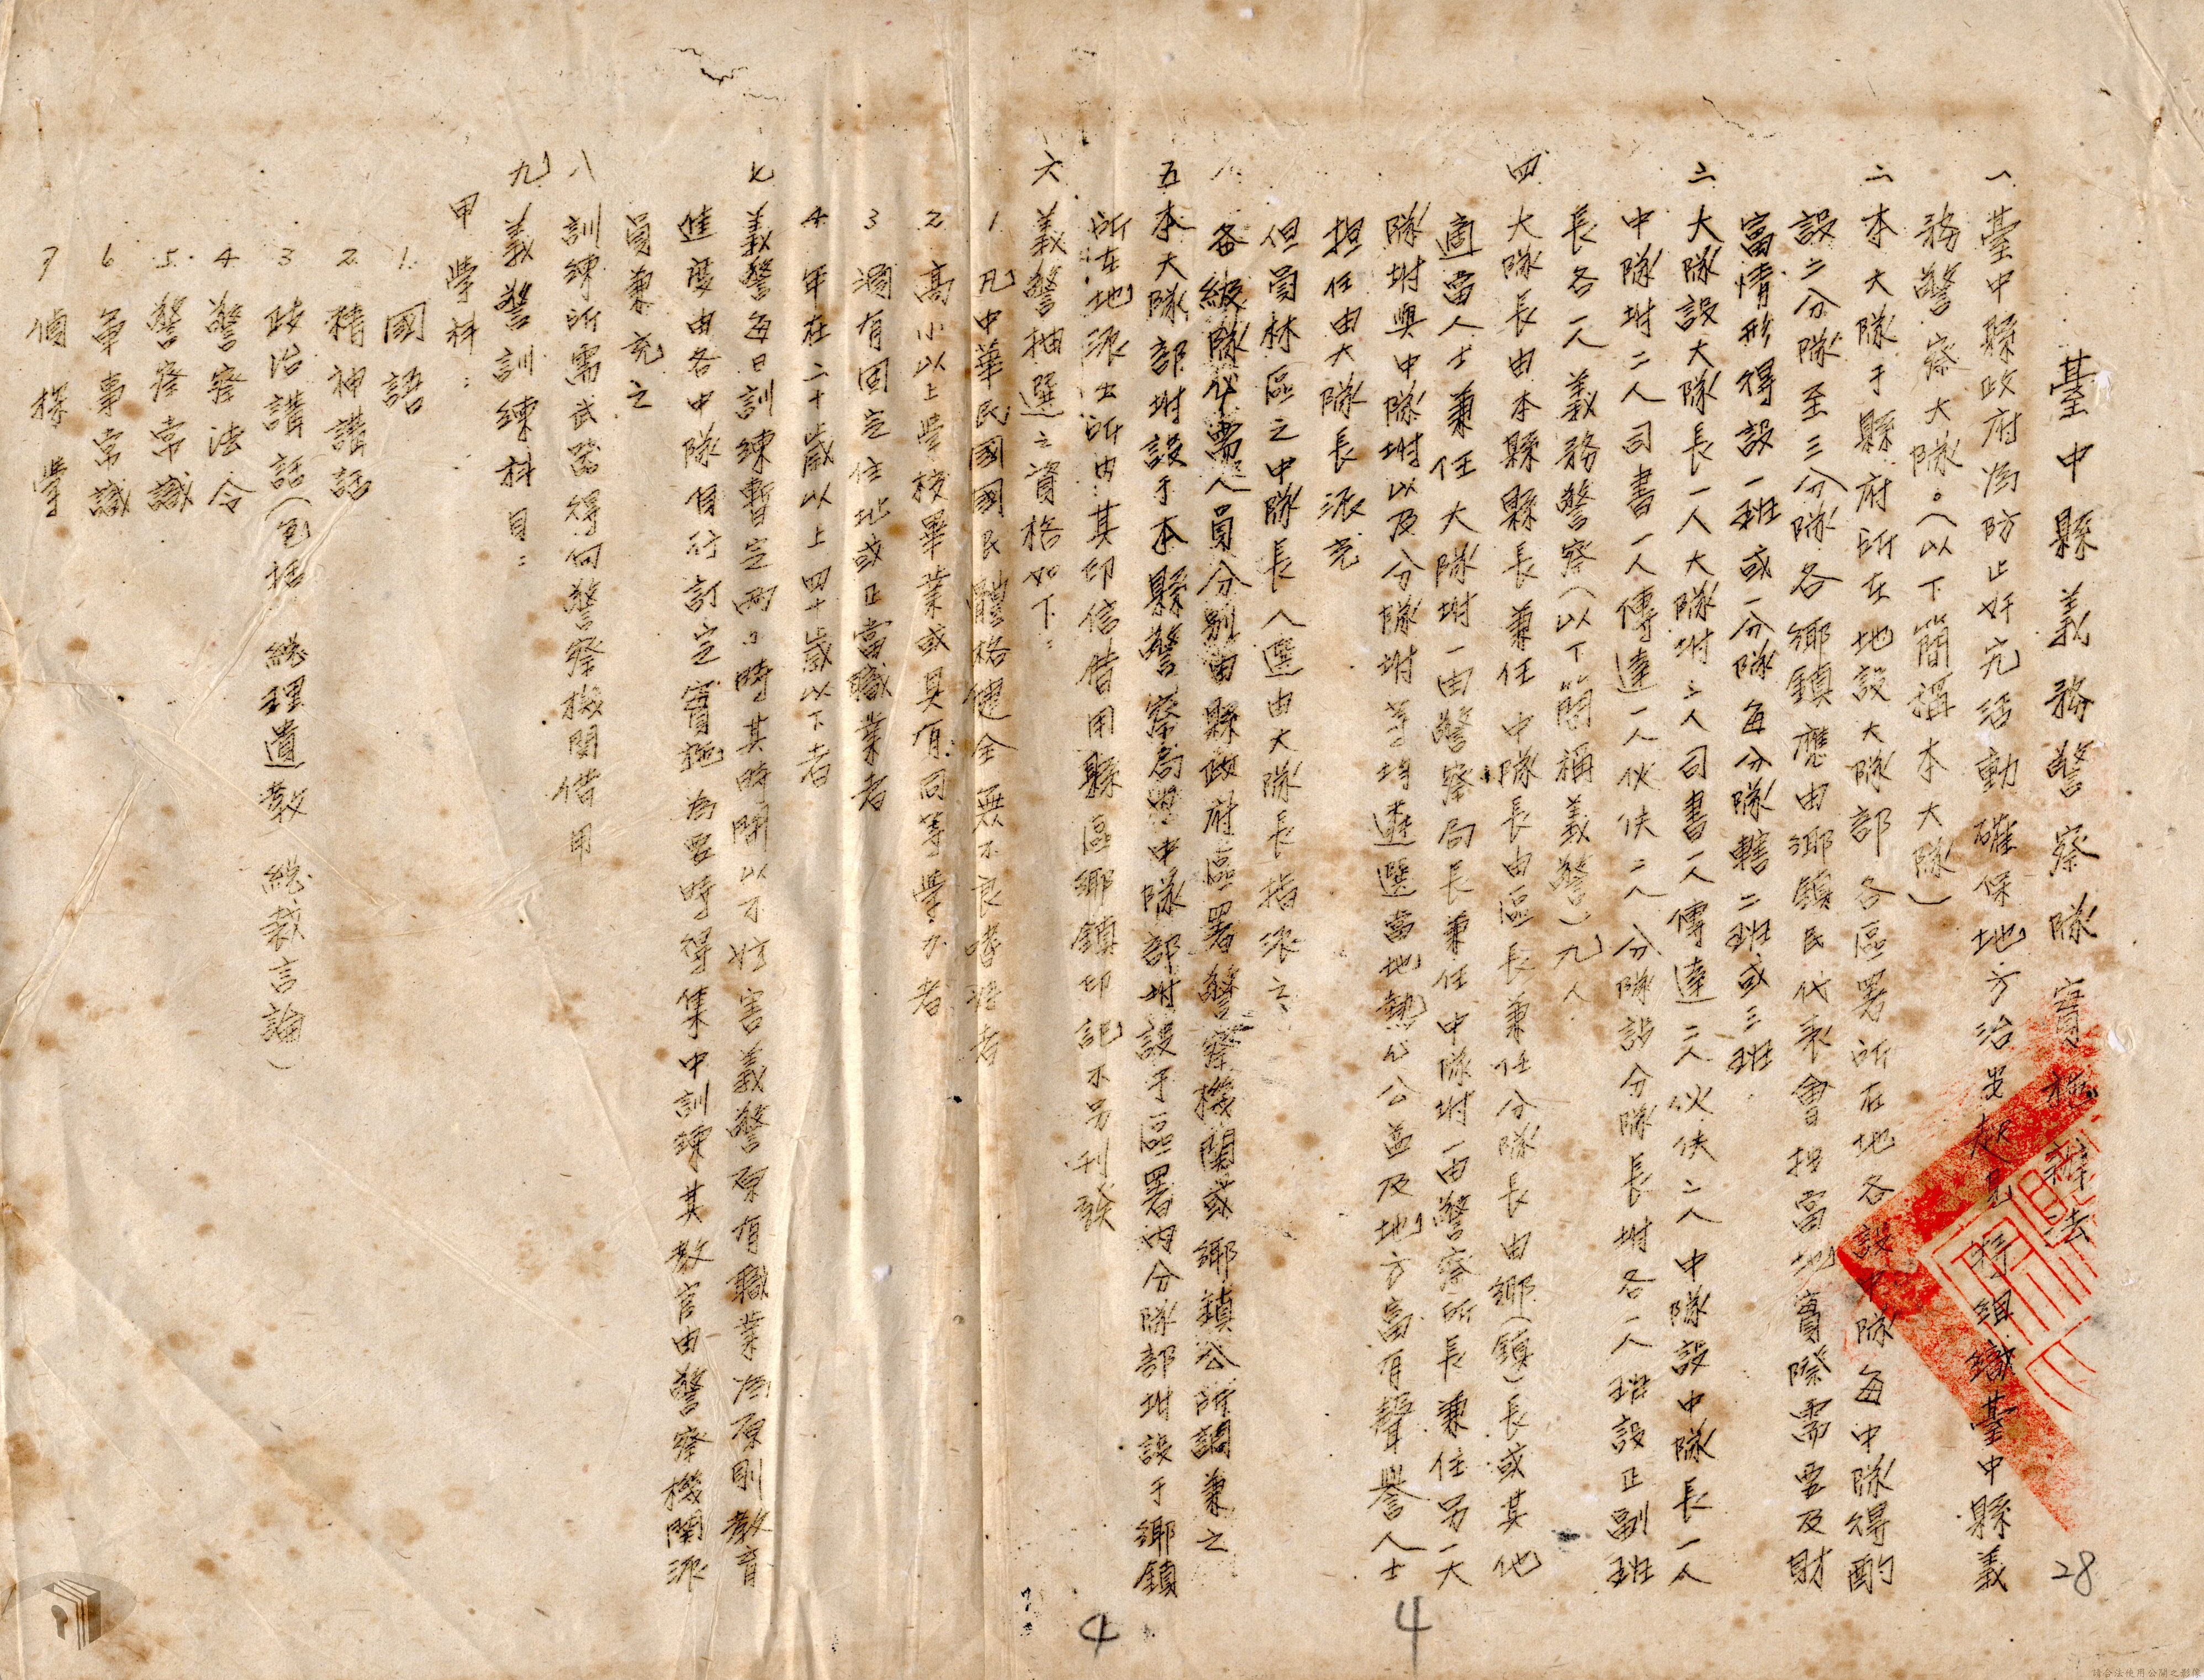 臺中縣義務警察隊實施辦法
一 臺中縣政府為防止奸宄活動確保地方治安起見特組織臺中縣義
務警察大隊。(以下簡稱本大隊)
二 本大隊于縣府所在地設大隊部各區署所在地各設中隊每中隊得酌
設二分隊至三分隊各鄉鎮應由鄉鎮民代表會担當地實際需要及財
富情形得設一班或一分隊每分隊轄二班或三班
三 大隊設大隊長一人大隊坿三人司書一人傳達二人伙伕二人中隊設中隊長一人
中隊坿二人司書一人傳達一人伙伕二人分隊設分隊長坿各一人班設正副班
長各一人義務警察(以下簡稱義警)九人
四 大隊長由本縣縣長兼任中隊長由區長兼任分隊長由鄉(鎮)長或其他
適當人士兼任大隊坿一由警察局長兼任中隊坿一由警察所長兼任另一大
隊坿與中隊坿以及分隊坿等均遴選當地熱心公益及地方富有聲譽人士
担任由大隊長派充
但員林區之中隊長人選由大隊長指派之
各級隊部需人員分別由縣政府區署警察機關或鄉鎮公所調兼之
五 本大隊部坿設于本縣警察局中隊部坿設于區署內分隊部坿設于鄉鎮
所在地派出所內其印信借用縣區鄉鎮印記不另刊發
六 義警抽選之資格如下:
1. 凡中華民國國民體格健全無不良嗜好者
2 高小以上學校畢業或具有同等學力者
3 須有固定住址或正當職業者
4. 年在二十歲以上四十歲以下者
七 義警每日訓練暫定兩小時其時間以不妨害義警原有職業為原則教育
進度由各中隊自行訂定實施為要時得集中訓練其教官由警察機關派
員兼充之
八 訓練所需武器得向警察機關借用
九 義警訓練科目:
甲 學科:
1. 國語
2. 精神講話
3 政治講話(包括 總理遺教 總裁言論)
4. 警察法令
5. 警察常識
6 軍事常識
7 偵探學
28
4
4
請合法使用公開之影像